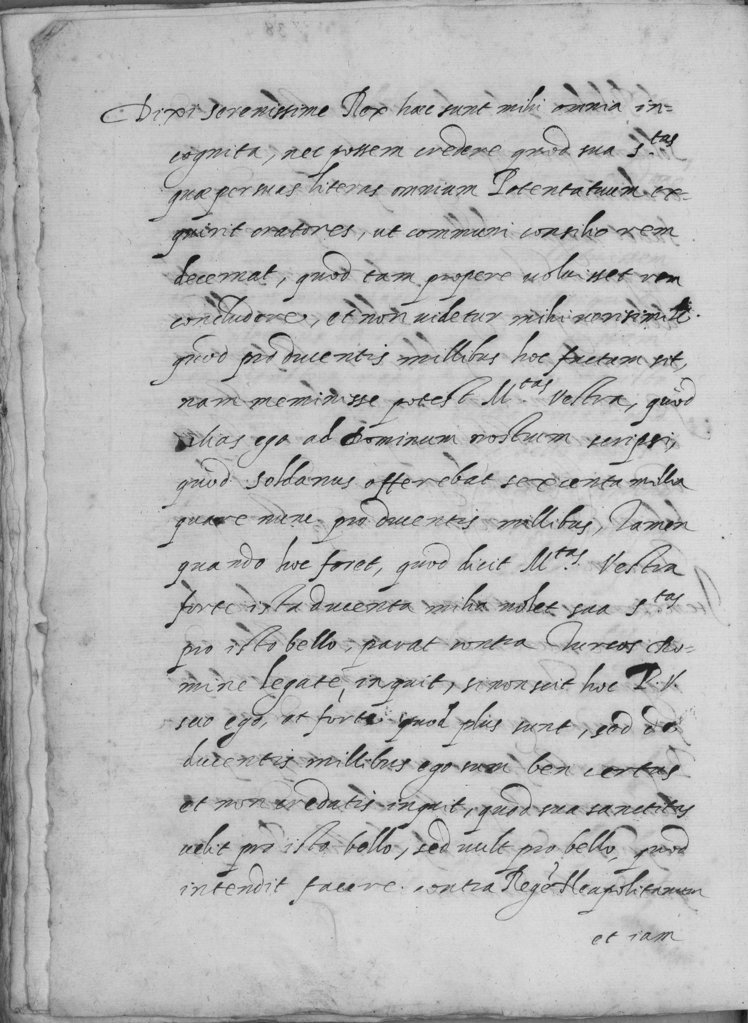 Dixi serenissime Rex haec sunt mihi omnia in=
cognita, nec possem credere quod sua S.tas
quae per suas literas omnium Potentatuum ex=
quirit oratores, ut communi consilio rem
decernat, quod tam propere uoluisset rem
concludere, et non uidetur mihi uerisimile
quod pro ducentis millibus hoc factum sit,
nam meminisse potest M.tas Vestra, quod
alias ego ad Dominum nostrum scripsi,
quod Soldanus offerebat sexcenta millia
quare nunc pro ducentis millibus, Tamen
quando hoc foret, quod dicit M.tas Vestra
forte ista ducenta milia uolet sua S.tas
pro isto bello, parat contra Turcos Do=
mine legate, inquit, si non scit hoc P. V.
scio ego, et forte quod plus sunt, sed de
ducentis millibus ego sum ben certus
et non credatis inquit, quod sua sanctitas
uelit pro isto bello, sed uult pro bello, quod
intendit facere contra Regē Neapolitanum
et iam